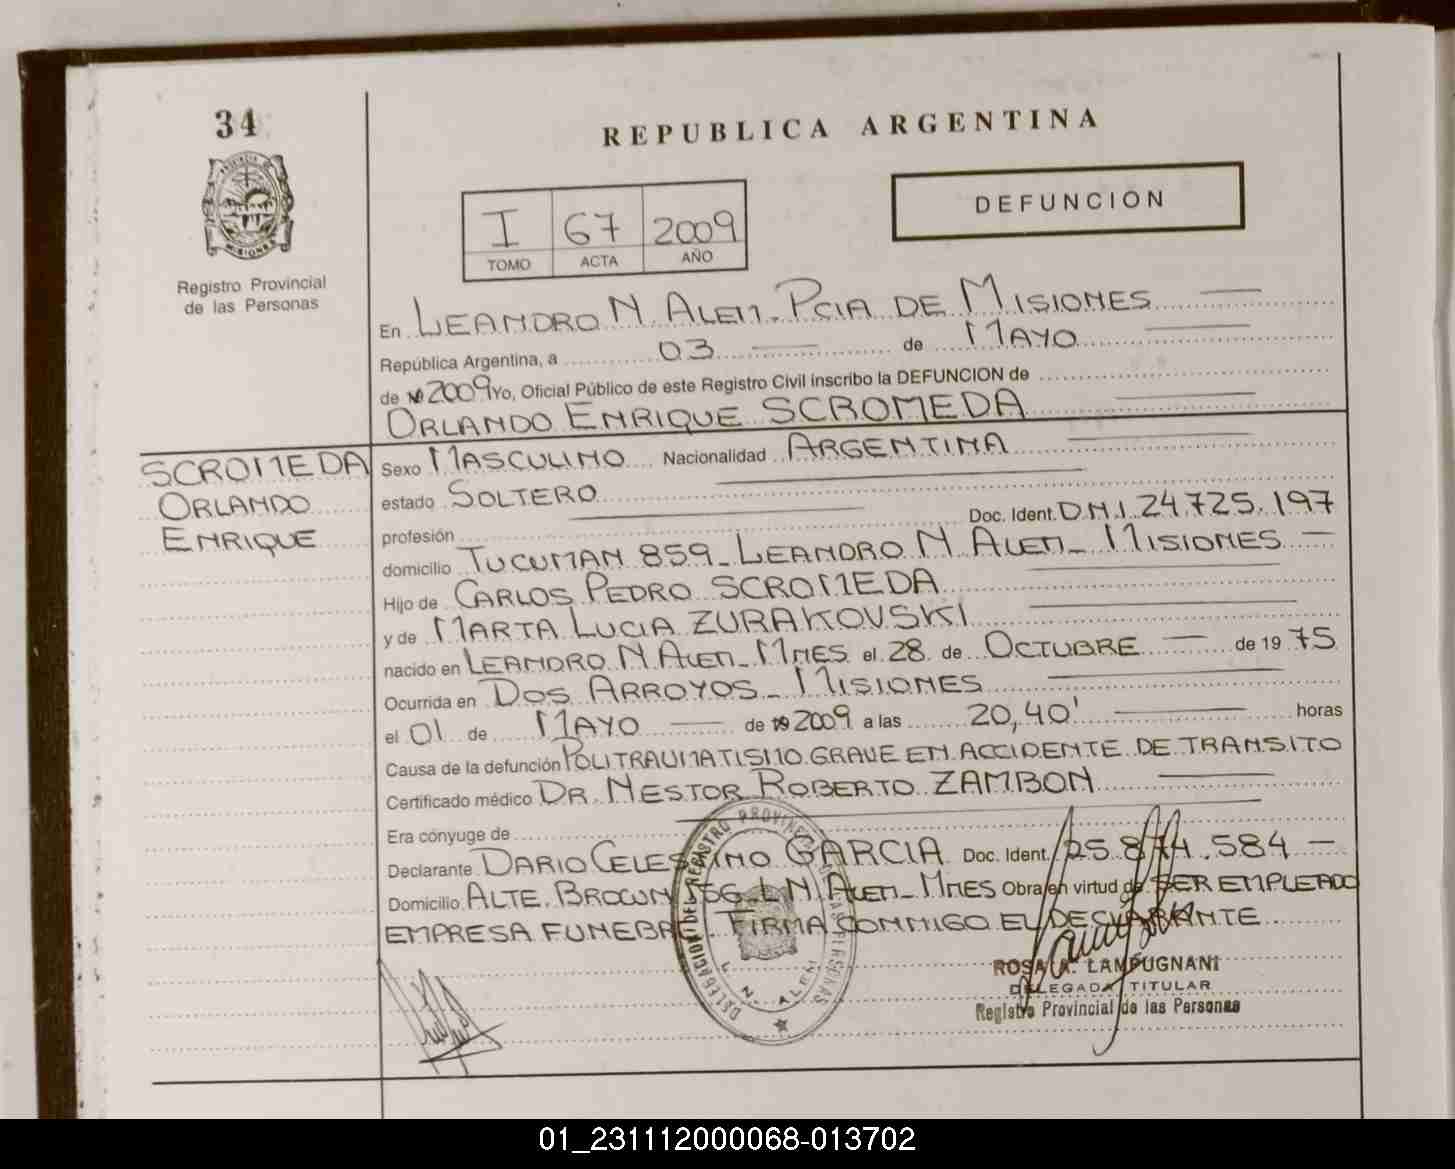 34
REPUBLICA ARGENTINA
PROVINCIA DE
MISIONES
Registro Provincial
de las Personas
I 67 2009
TOMO ACTA AÑO
DEFUNCION
En LEANDRO N. ALEM - PCIA DE MISIONES
República Argentina, a 03 de MAYO
de 2009 Yo, Oficial Público de este Registro Civil inscribo la DEFUNCION de
ORLANDO ENRIQUE SCROMEDA
SCROMEDA
ORLANDO
ENRIQUE
Sexo MASCULINO Nacionalidad ARGENTINA
estado SOLTERO
profesión Doc. Ident. D.N.I. 24.725.197
domicilio TUCUMAN 859 - LEANDRO N. ALEM - MISIONES
Hijo de CARLOS PEDRO SCROMEDA
y de MARTA LUCIA ZURAKOVSKI
nacido en LEANDRO N. ALEM - MNES el 28 de OCTUBRE de 1975
Ocurrida en DOS ARROYOS - MISIONES
el 01 de MAYO de 2009 a las 20,40' horas
Causa de la defunción POLITRAUMATISMO GRAVE EN ACCIDENTE DE TRANSITO
Certificado médico DR. NESTOR ROBERTO ZAMBON
Era cónyuge de
Declarante DARIO CELESTINO GARCIA Doc. Ident. 25.874.584
Domicilio ALTE. BROWN L.N. ALEM - MNES Obra en virtud de SER EMPLEADO
EMPRESA FUNEBRE. FIRMA CONMIGO EL DECLARANTE
DELEGACION DEL REGISTRO PROVINCIAL DE LAS PERSONAS
L. N. ALEM
ROSA A. LAMPUGNANI
DELEGADA TITULAR
Registro Provincial de las Personas
01_231112000068-013702